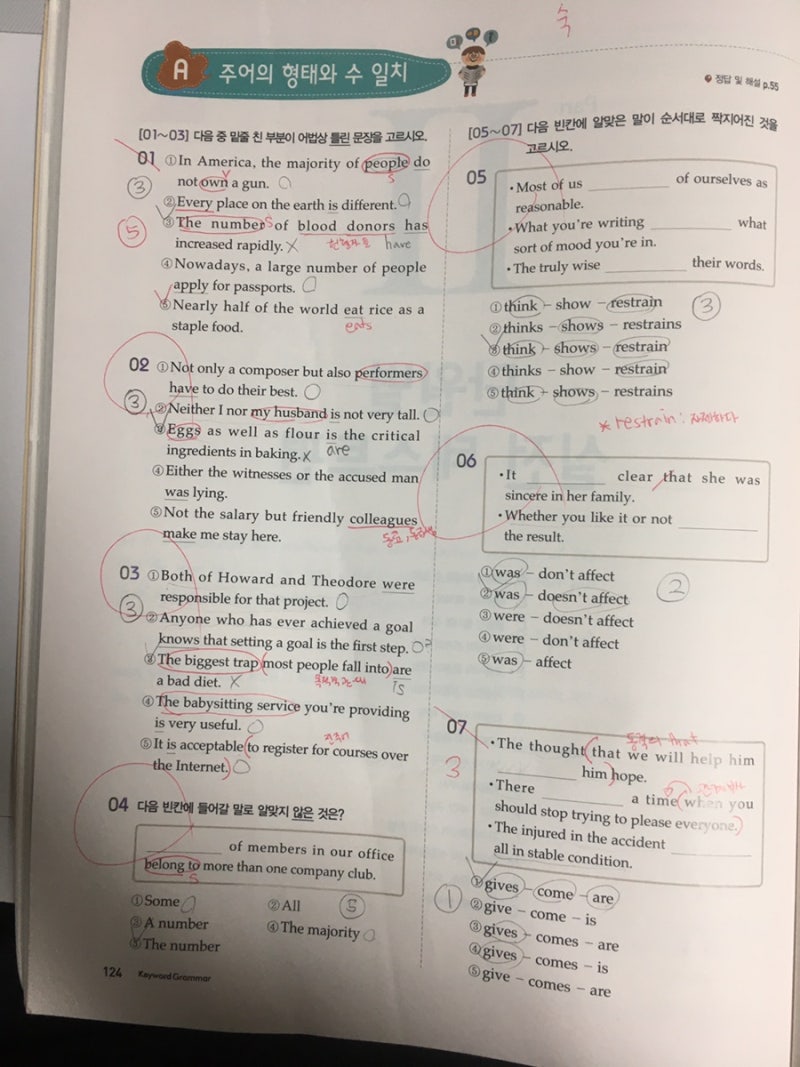 숙
A 주어의 형태와 수 일치
정답 및 해설 p.55
[01~03] 다음 중 밑줄 친 부분이 어법상 틀린 문장을 고르시오.
01 ①In America, the majority of people do
not own a gun.
S
③
②Every place on the earth is different.
⑤
③The number of blood donors has
S
increased rapidly.
헌혈자들 have
④Nowadays, a large number of people
apply for passports.
⑤Nearly half of the world eat rice as a
staple food.
eats
02 ①Not only a composer but also performers
have to do their best.
③
②Neither I nor my husband is not very tall.
③Eggs as well as flour is the critical
ingredients in baking.
are
④Either the witnesses or the accused man
was lying.
⑤Not the salary but friendly colleagues
make me stay here.
03 ①Both of Howard and Theodore were
responsible for that project.
③
②Anyone who has ever achieved a goal
knows that setting a goal is the first step.
?
③The biggest trap most people fall into are
a bad diet.
is
④The babysitting service you're providing
is very useful.
⑤It is acceptable to register for courses over
the Internet.
04 다음 빈칸에 들어갈 말로 알맞지 않은 것은?
of members in our office
belong to more than one company club.
S
①Some ②All
⑤
③A number ④The majority
⑤The number
124 Keyword Grammar
[05~07] 다음 빈칸에 알맞은 말이 순서대로 짝지어진 것을
고르시오.
05
•Most of us of ourselves as
reasonable.
•What you're writing what
sort of mood you're in.
•The truly wise their words.
①think – show – restrain
③
②thinks – shows – restrains
③think – shows – restrain
④thinks – show – restrain
⑤think – shows – restrains
* restrain : 자제하다
06
•It clear that she was
sincere in her family.
•Whether you like it or not
the result.
①was – don't affect
②
②was – doesn't affect
③were – doesn't affect
④were – don't affect
⑤was – affect
07
3
동격의 that
•The thought that we will help him
him hope.
•There a time when you
should stop trying to please everyone.
•The injured in the accident
all in stable condition.
①
①gives – come – are
②give – come – is
③gives – comes – are
④gives – comes – is
⑤give – comes – are